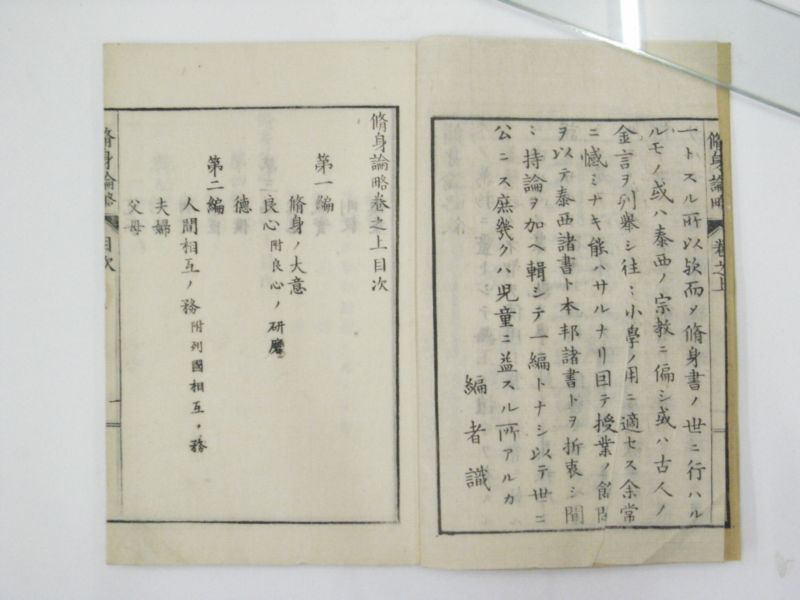 脩身論略 卷之上
一トスル所以歟而メ脩身書ノ世ニ行ハル
ルモノ或ハ泰西ノ宗教ニ偏シ或ハ古人ノ
金言ヲ列舉シ往〻小學ノ用ニ適セス余常
ニ憾ミナキ能ハサルナリ因テ授業ノ餘間
ヲ以テ泰西諸書ト本邦諸書トヲ折衷シ間
〻持論ヲ加ヘ輯シテ一編トナシ以テ世ニ
公ニス庶幾クハ児童ニ益スル所アルカ
編者識
脩身論略卷之上目次
第一編
脩身ノ大意
良心 附良心ノ研磨
德
第二編
人間相互ノ務 附列國相互ノ務
夫婦
父母
脩身論略 目次 一